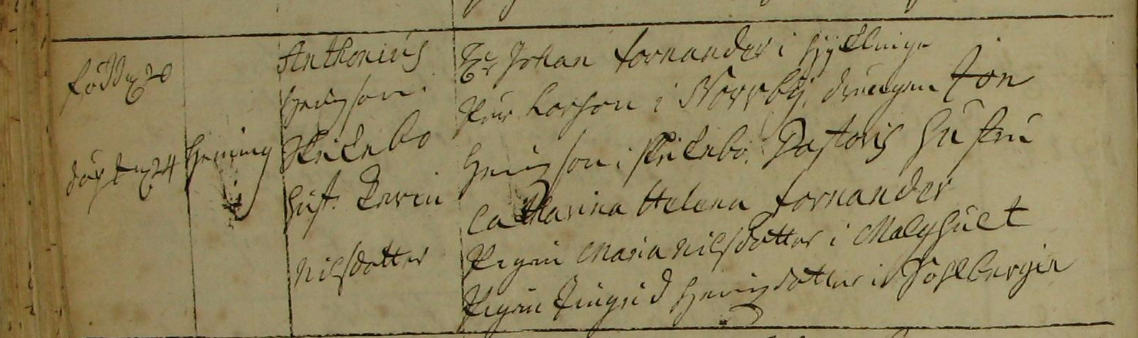 född 20
döpt 24
Hening
Anthonius
Heningson.
Skilebo
Hust. Kerin
Nilsdotter
Hr Johan Fornander i
Pär Larson i Norrby, drengen Jon
Heningson i Skilebo, Pastoris Hustru
Catharina Helena Fornander
Pigan Maria Nilsdotter i Malghult
Pigan Ingrid Heningsdotter i